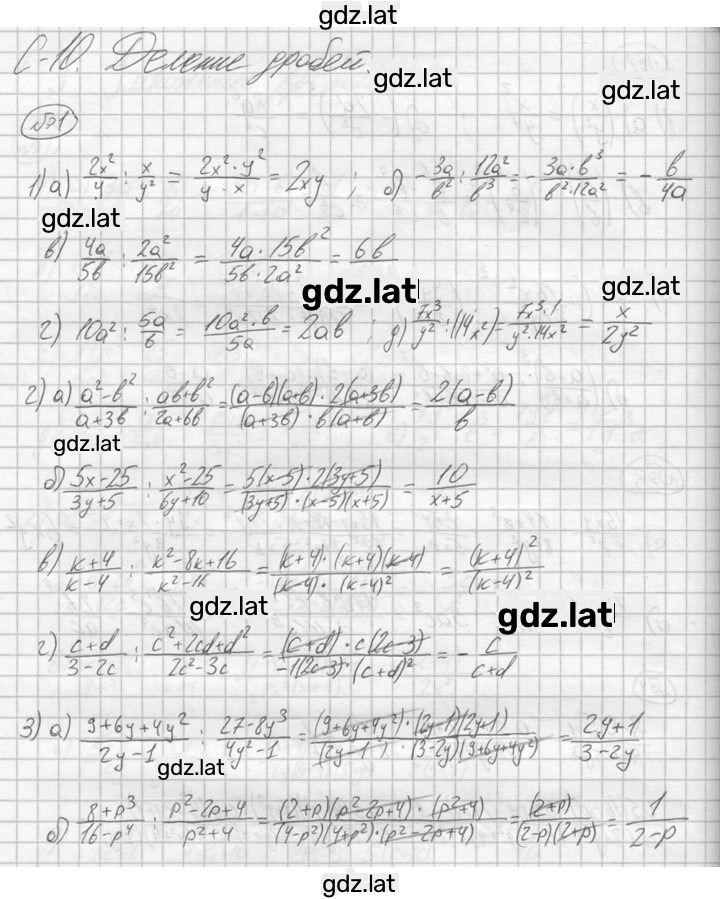 gdz.lat
С-10. Деление дробей.
gdz.lat
gdz.lat
№71
1) а) 2x²/y : x/y² = 2x²·y²/y·x = 2xy ; б) -3a/b² : 12a²/b³ = -3a·b³/b²·12a² = -b/4a
gdz.lat
в) 4a/5b : 2a²/15b² = 4a·15b²/5b·2a² = 6b
gdz.lat
gdz.lat
г) 10a² : 5a/b = 10a²·b/5a = 2ab ; д) 7x³/y² : (14x²) = 7x³·1/y²·14x² = x/2y²
2) а) a²-b²/a+3b : ab+b²/2a+6b = (a-b)(a+b)·2(a+3b)/(a+3b)·b(a+b) = 2(a-b)/b
gdz.lat
б) 5x-25/3y+5 : x²-25/6y+10 = 5(x-5)·2(3y+5)/(3y+5)·(x-5)(x+5) = 10/x+5
в) k+4/k-4 : k²-8k+16/k²-16 = (k+4)·(k+4)(k-4)/(k-4)·(k-4)² = (k+4)²/(k-4)²
gdz.lat
gdz.lat
г) c+d/3-2c : c²+2cd+d²/2c²-3c = (c+d)·c(2c-3)/-1(2c-3)·(c+d)² = -c/c+d
3) а) 9+6y+4y²/2y-1 : 27-8y³/4y²-1 = (9+6y+4y²)·(2y-1)(2y+1)/(2y-1)·(3-2y)(9+6y+4y²) = 2y+1/3-2y
gdz.lat
б) 8+p³/16-p⁴ : p²-2p+4/p²+4 = (2+p)(p²-2p+4)·(p²+4)/(4-p²)(4+p²)·(p²-2p+4) = (2+p)/(2-p)(2+p) = 1/2-p
gdz.lat